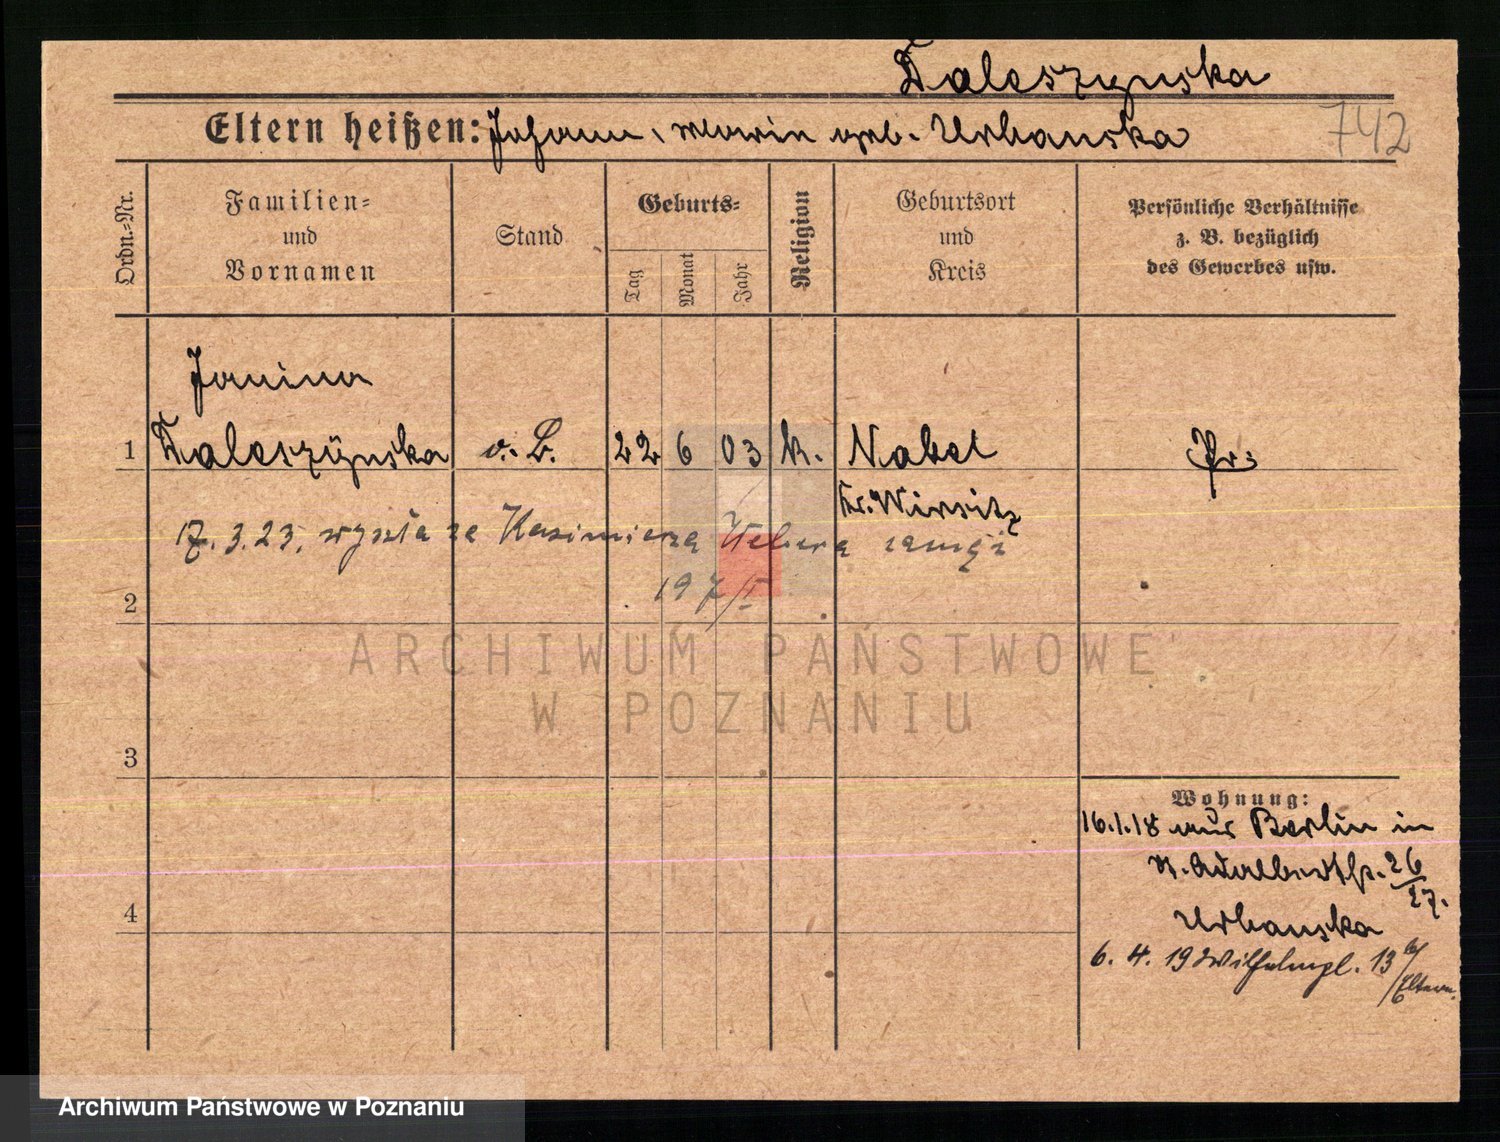 Daleszynska
Eltern heißen: Johann, Maria geb. Urbanska
742
Ordn.-Nr.
Familien-
und
Vornamen
Stand
Geburts-
Tag
Monat
Jahr
Religion
Geburtsort
und
Kreis
Persönliche Verhältnisse
z. B. bezüglich
des Gewerbes usw.
Janina
1 Daleszynska o. B. 22 6 03 k. Nakel Pr:
Kr. Wirsitz
17.3.23. wyszła za Kazimierza Webera zamąż
2
ARCHIWUM PAŃSTWOWE
W POZNANIU
3
Wohnung:
16.1.18 aus Berlin in
St. Adalbertstr. 26/27.
4
Urbanska
6. 4. 19 Wilhelmpl. 13 b/Eltern.
Archiwum Państwowe w Poznaniu